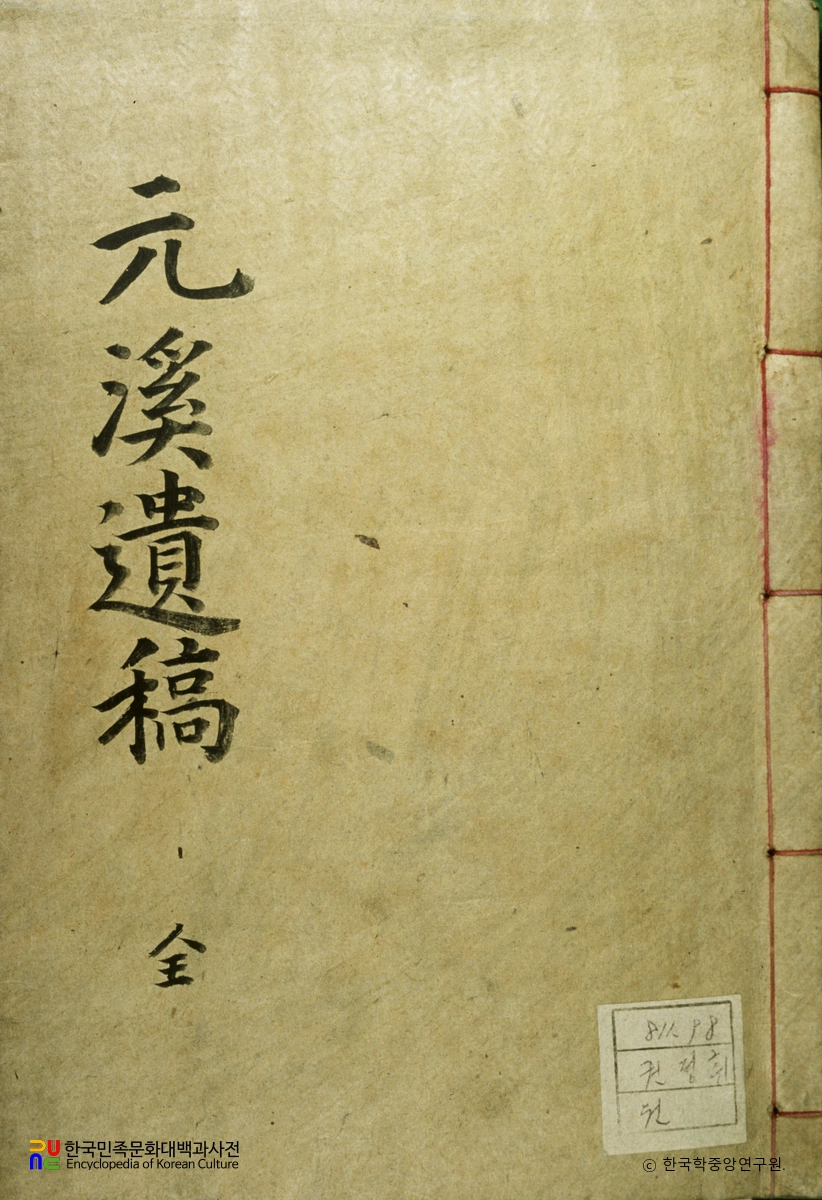 元溪遺稿
全
811.98
권정휘
원
한국민족문화대백과사전
Encyclopedia of Korean Culture
© 한국학중앙연구원.